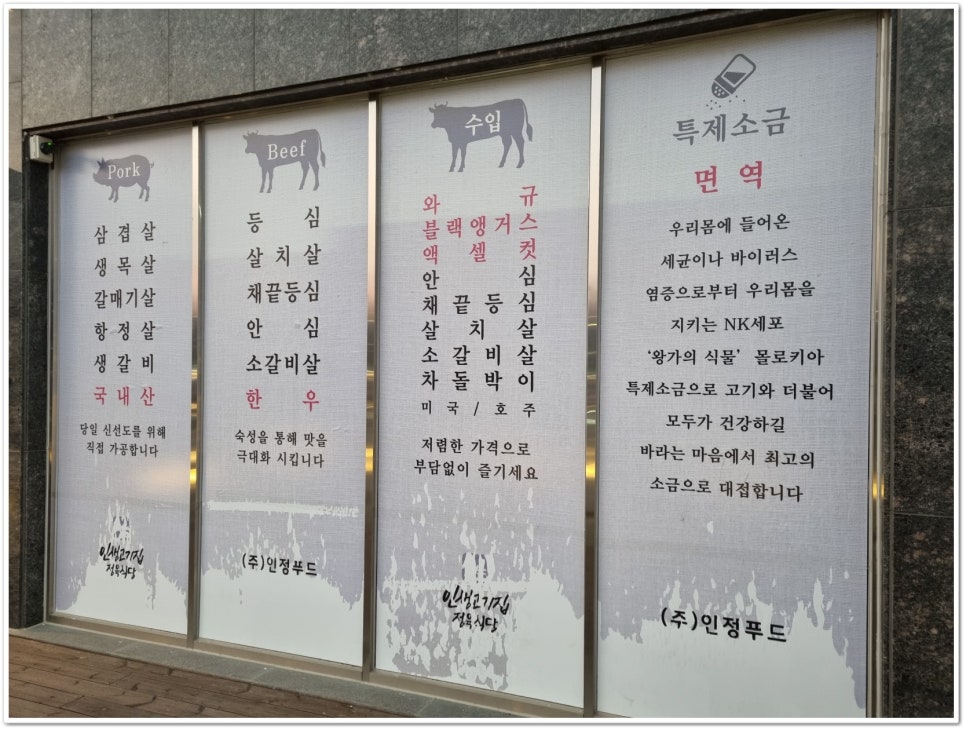 Pork
삼겹살
생목살
갈매기살
항정살
생갈비
국내산
당일 신선도를 위해
직접 가공합니다
인생고기집
정육식당
Beef
등심
살치살
채끝등심
안심
소갈비살
한우
숙성을 통해 맛을
극대화 시킵니다
(주)인정푸드
수입
와규
블랙앵거스
액셀컷
안심
채끝등심
살치살
소갈비살
차돌박이
미국/호주
저렴한 가격으로
부담없이 즐기세요
인생고기집
정육식당
특제소금
면역
우리몸에 들어온
세균이나 바이러스
염증으로부터 우리몸을
지키는 NK세포
‘왕가의 식물’ 몰로키아
특제소금으로 고기와 더불어
모두가 건강하길
바라는 마음에서 최고의
소금으로 대접합니다
(주)인정푸드